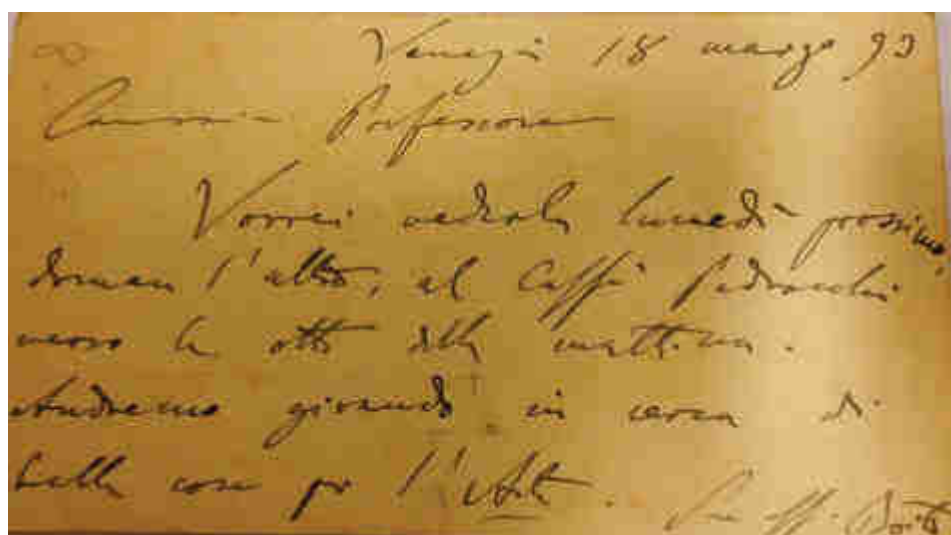 Venezia 18 marzo 93
Carissimo Professore
Vorrei vederla lunedì prossimo,
doman l'altro, al Caffè Pedrocchi
verso le otto della mattina.
Andremo girando in cerca di
belle cose per l'Arte. Suo aff. Boito